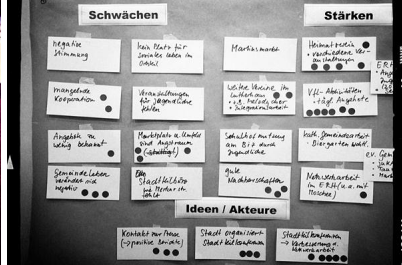 Schwächen
Stärken
negative
Stimmung
kein Platz für
soziales Leben im
Ortsteil
Martinsmarkt
Heimatverein
+ verschiedene Ver-
anstaltungen
mangelnde
Kooperation
Veranstaltungen
für Jugendliche
fehlen
weitere Vereine im
VfL-Aktivitäten
+ tägl. Angebote
Angebote zu
wenig bekannt
Marktplatz u. Umfeld
sind Angstraum
Schulhofnutzung
am Bis durch
Jugendliche
kath. Gemeindearbeit
+ Biergarten
ev. Gem
Gemeindeleben
verändert sich
negativ
Stadtteilbüro
fehlt
gute
Nachbarschaften
Netzwerkarbeit
im ERSt (u.a. mit
Moschee)
Ideen / Akteure
Kontakt zur Presse
(→ positive Berichte)
Stadt organisiert
Stadtteilkonferenz
Stadtteilkonferenzen
→ Verbesserung d.
Netzwerkarbeit